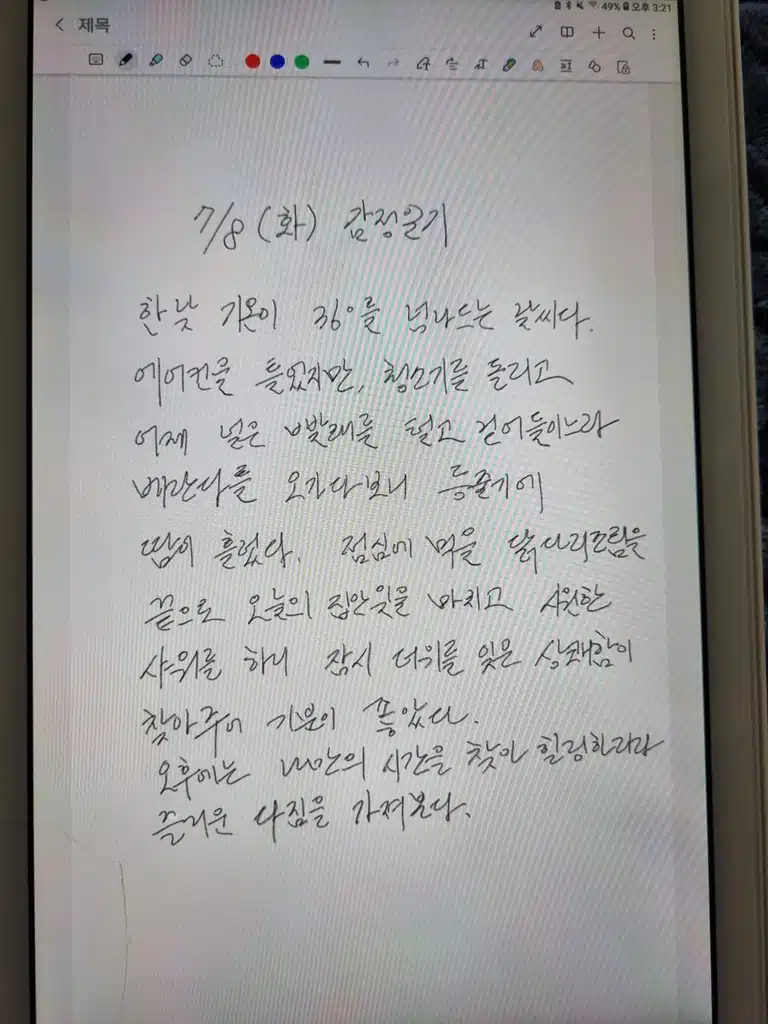 49% 오후 3:21
제목
7/8 (화) 감정일기
한낮 기온이 36°를 넘나드는 날씨다.
에어컨을 틀었지만, 청소기를 돌리고
어제 널은 빨래를 털고 걷어들이느라
베란다를 오가다보니 등줄기에
땀이 흘렀다. 점심에 먹을 닭다리조림을
끝으로 오늘의 집안일을 마치고 시원한
샤워를 하니 잠시 더위를 잊은 상쾌함이
찾아주어 기분이 좋았다.
오후에는 나만의 시간을 찾아 힐링하리라
즐거운 다짐을 가져본다.